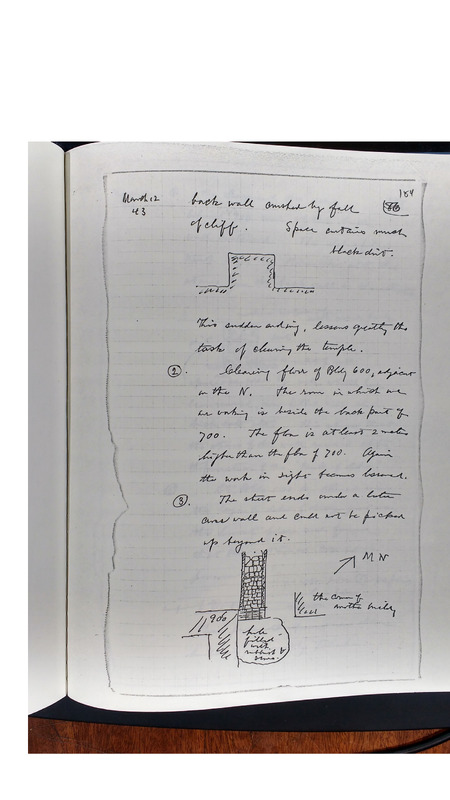 184
March 12
43
86
back wall crushed by fall
of cliff. Space contains much
black dirt.
This sudden ending, lessens greatly the
task of clearing the temple.
2. Clearing floor of Bldg 600, adjacent
on the N. The room in which we
are working is beside the back part of
700. The floor is at least 2 meters
higher than the floor of 700. Again
the work in sight becomes lessened.
3. The street ends under a later
cross wall and could not be picked
up beyond it.
MN
the corner of
another building
900
hole
filled
with
rubbish &